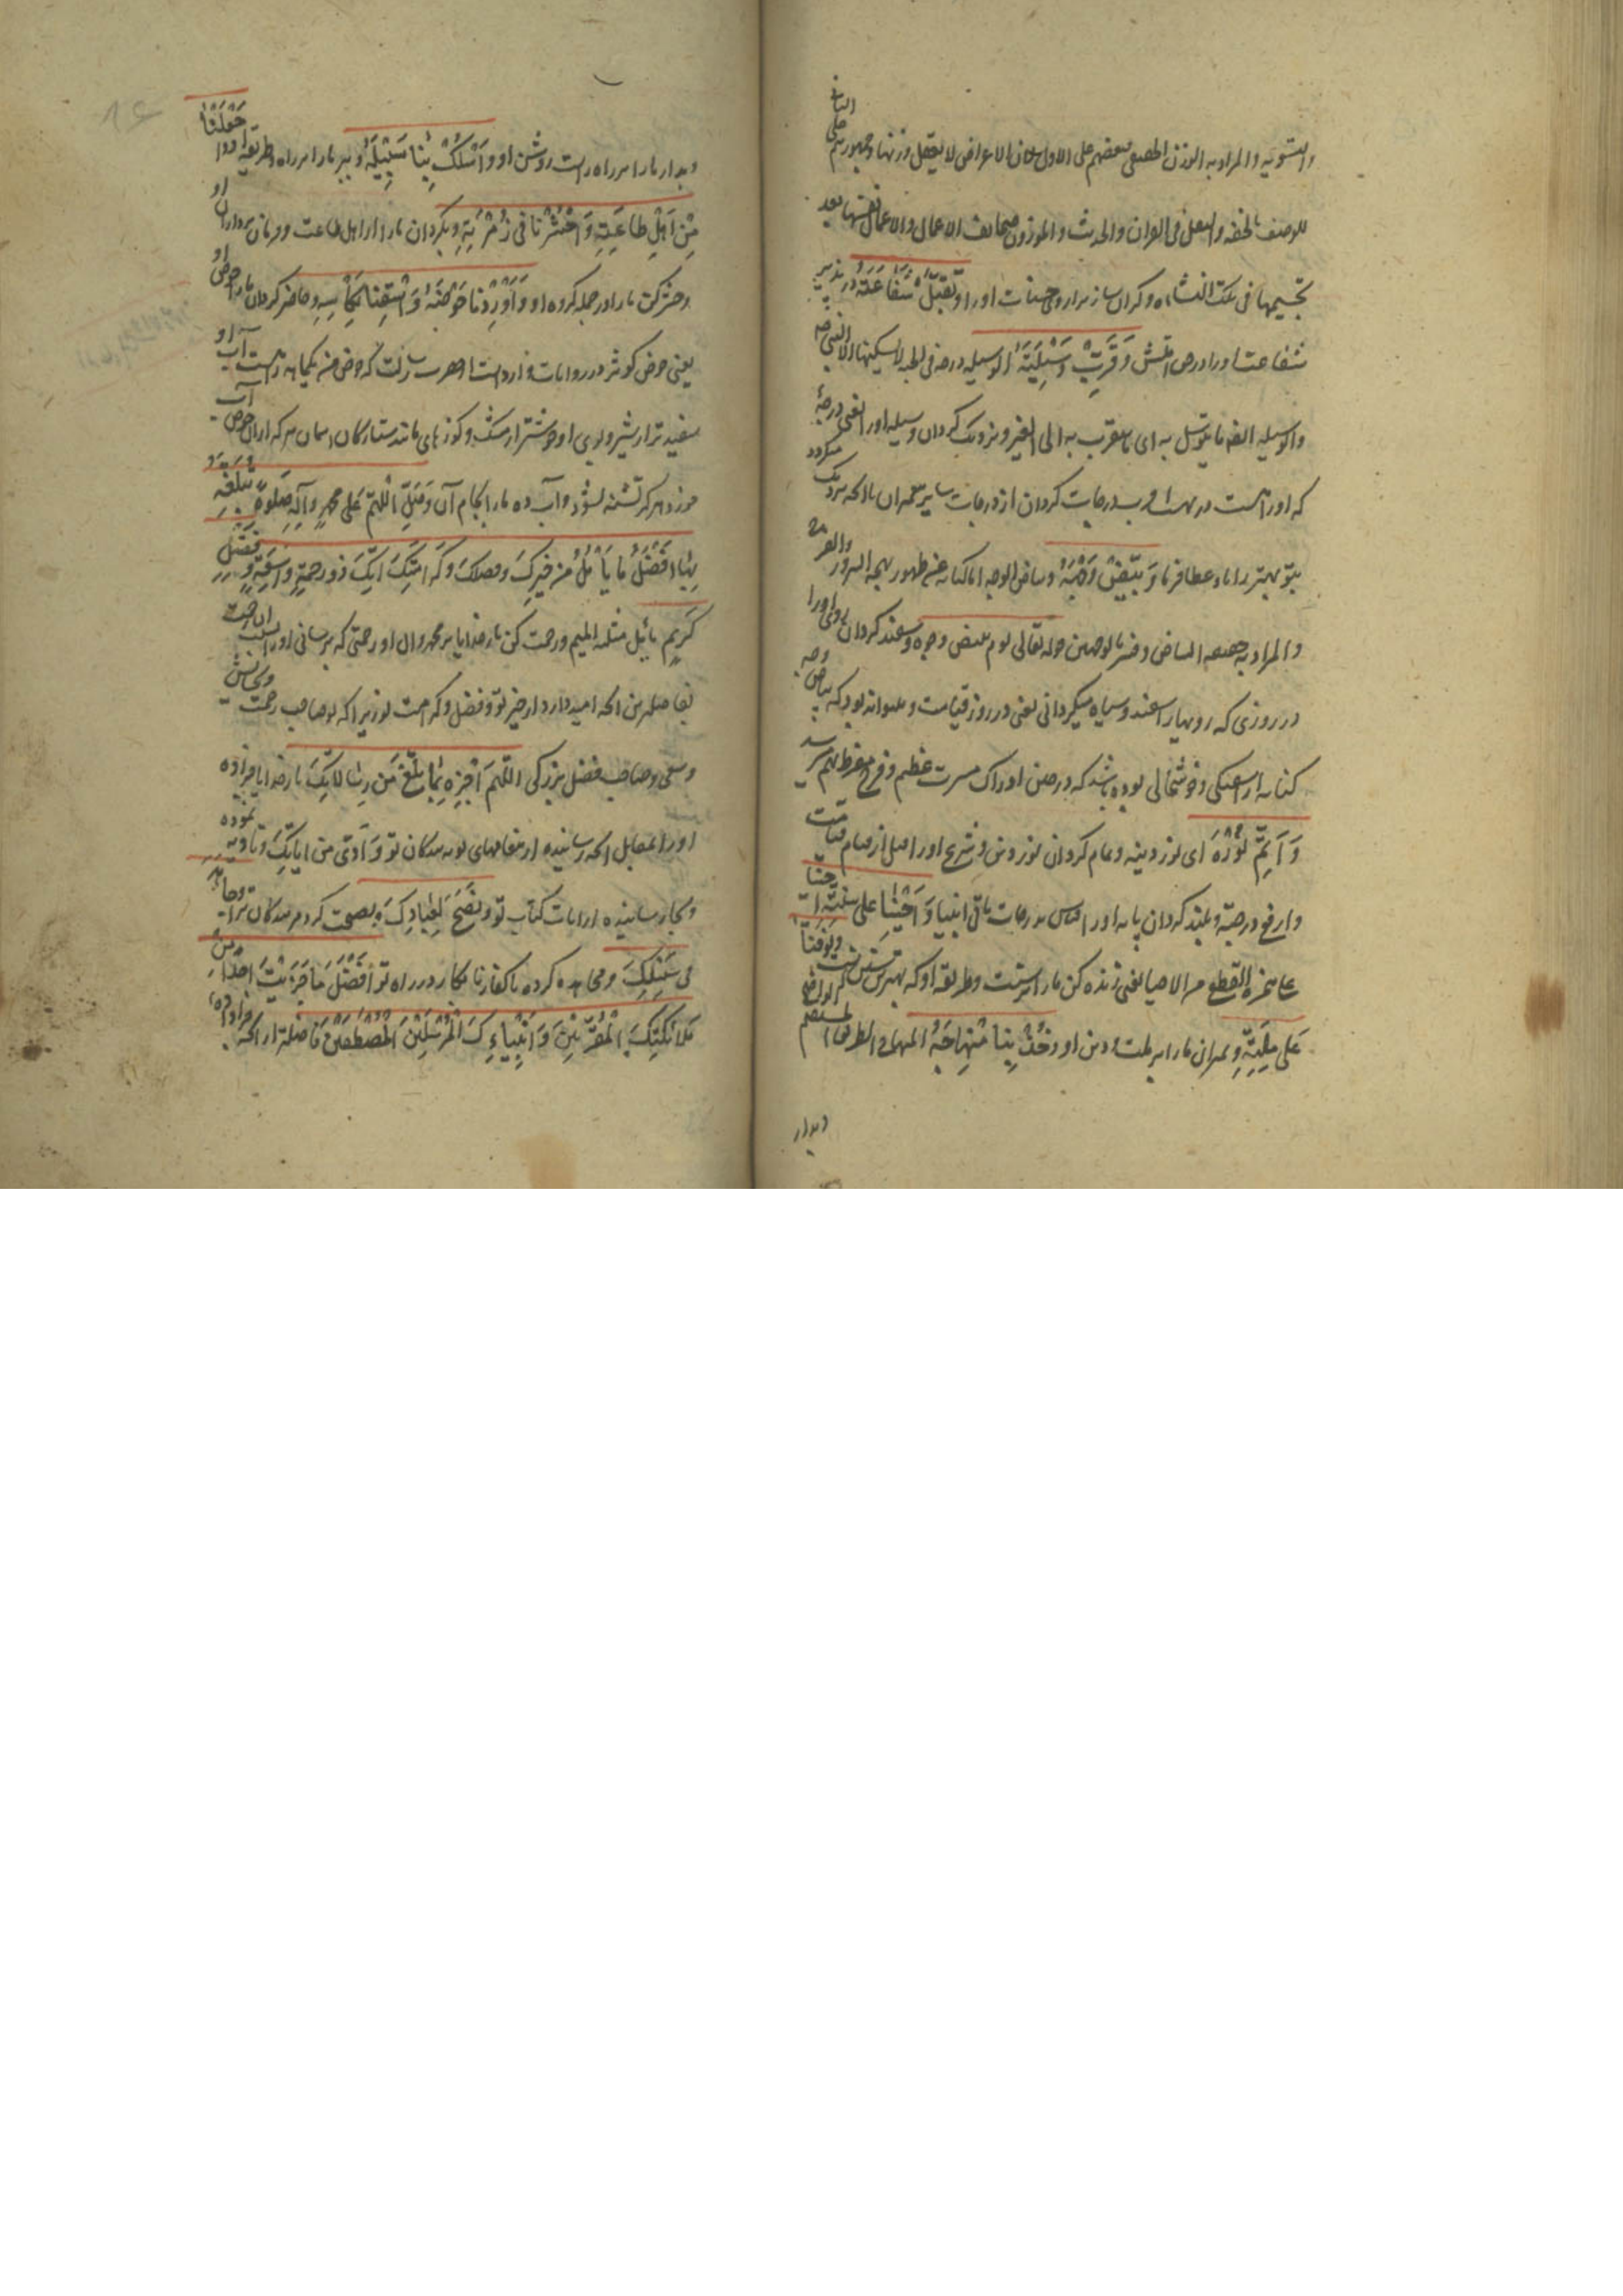 والتسویه والمراد به الوزن الحقیقی بعضهم علی الاول لان الاعراض لا یعقل وزنها وجمهورهم علی الثانی
للوصف بالخفه والثقل فی القران والحدیث والموزون صحائف الاعمال والاعمال نفسها بعد
تجسیمها فی تلک النشاه و کران ساز ترازوی حسنات او را وَتَقَبَّلْ شَفَاعَتَهُ و در پذیر
شفاعت او را در حق امتش وَقَرِّبْ وَسِیْلَتَهُ الوسیله درجه فی الجنه لا یسکنها الا النبی ص
والوسیله ایضا ما یتوسل به ای ما یتقرب به الی الغیر و نزدیک کردان وسیله او را یعنی درجهٔ
که او راست در بهشت و بدرجات کردان از درجات سایر پیغمبران یا آنچه نزدیک میکردد
بتو بهتر بدان او عطا فرما وَبَیِّضْ وَجْهَهُ و بیاض الوجه اما کنایه عن ظهور بهجه السرور والفرح
والمراد به حقیقه البیاض وفسر بالوجهین قوله تعالی یوم تبیض وجوه و سفید کردان روی او را
در روزی که رویها را سفید و سیاه میکردانی یعنی در روز قیامت و میتواند بود که بیاض وجه
کنایه از سفیدی و خوشحالی بوده باشد که در حین ادراک مسرت عظیم و فرح مفرط بهم میرسد
وَاَتِمَّ نُوْرَهُ ای نور دینه و تمام کردان نور دین و شرع او را قبل از قیام قیامت
وارفع درجته و بلند کردان پایه او را از درجات باقی انبیا وَاَحْیِنَا عَلی سُنَّتِهِ احینا
علی ملته القطع من الاحیا یعنی زنده کن ما را بر سنت و طریقه او که بهترین سنن است وتوفنا
عَلی مِلَّتِهِ و بمیران ما را بر ملت و دین او وَخُذْ بِنَا مِنْهَاجَهُ المنهاج الطریق المستقیم
و بدار
و بدار ما را بر راه راست روشن او وَاسْلُکْ بِنَا سَبِیْلَهُ و ببر ما را بر راه و طریقه او وَاجْعَلْنَا
مِنْ اَهْلِ طَاعَتِهِ وَاحْشُرْنَا فِی زُمْرَتِهِ و بکردان ما را از اهل طاعت و فرمان برداران او
و حشر کن ما را در جمله کروه او وَاَوْرِدْنَا حَوْضَهُ وَاسْقِنَا بِکَأْسِهِ و حاضر کردان ما را حوض او
یعنی حوض کوثر در روایات وارد است از حضرت رسالت که حوض من یکماهه راهست آب او
سفید تر از شیر و بوی او خوشتر از مشک و کوزهای مانند ستارکان اسمان هر که از ان حوض آب
خورد هرکز تشنه نشود و آب ده ما را بجام آن وَصَلِّ اللّهُمَّ عَلی مُحَمَّدٍ وَآلِهِ صَلوةً تُبَلِّغُهُ
بِهَا اَفْضَلُ مَا یَأْمُلُ مِنْ خَیْرِکَ وَفَضْلِکَ وَکَرَامَتِکَ اِنَّکَ ذُو رَحْمَةٍ وَاسِعَةٍ وَفَضْلٍ
کَرِیْمٍ و رحمت کن بار خدایا بر محمد و ال او رحمتی که برسانی او را بسبب ان رحمت
بفاضلترین انچه امید دارد از خیر تو و فضل و کرامت تو زیرا که تو صاحب رحمت و بخشش
وسیع و صاحب فضل بزرکی اللّهُمَّ اَجْزِهِ بِمَا بَلَّغَ مِنْ رِسَالَاتِکَ بار خدایا جزا ده
او را بمقابل انچه رسانیده از پیغامهای تو به بندکان تو وَاَدَّی مِنْ ایَاتِکَ و تادیه نموده
و بجا رسانیده از ایات کتاب تو وَنَصَحَ لِعِبَادِکَ و نصیحت کرده مر بندکان ترا وَجَاهَدَ
فِی سَبِیْلِکَ و مجاهده کرده با کفار نابکار در راه تو اَفْضَلَ مَا جَزَیْتَ اَحَدًا مِنْ
مَلَائِکَتِکَ الْمُقَرَّبِیْنَ وَاَنْبِیَاءِکَ الْمُرْسَلِیْنَ الْمُصْطَفَیْنَ فاضلتر از انچه جزا داده